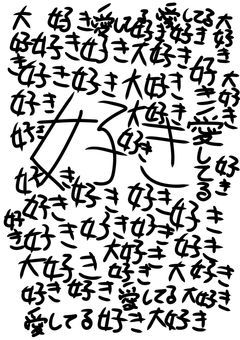 大 好き 愛してる 愛してる 大好き
好き 好き 好き 大好き 好き
好き 好き 好き 大 好き 好き
好き 大好き 好き 愛してる
好き 好き 好き
好き 好き 好き 好き 好き
好き 好き 好き 好き 好き
好き 大好き 好き
大好き 好き 大好き
好き 好き 愛してる 大好き
愛してる 好き 大好き